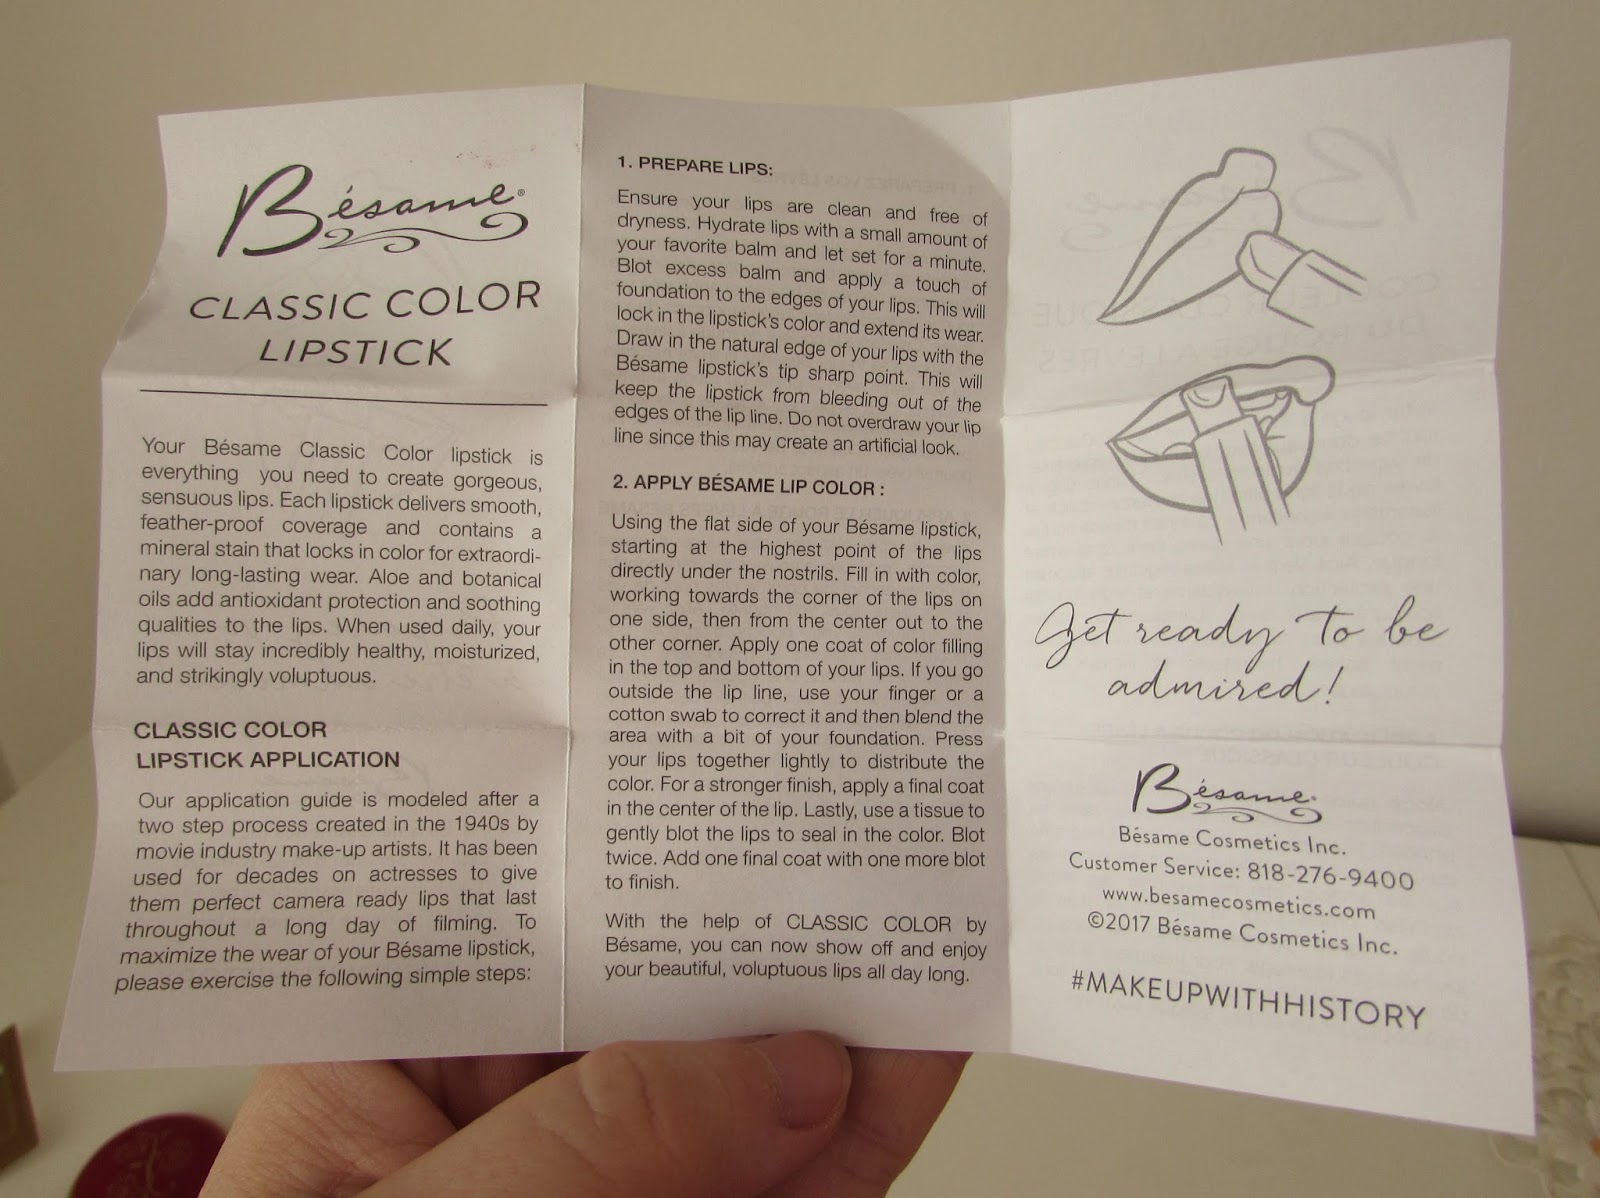 Bésame®
CLASSIC COLOR
LIPSTICK
Your Bésame Classic Color lipstick is
everything you need to create gorgeous,
sensuous lips. Each lipstick delivers smooth,
feather-proof coverage and contains a
mineral stain that locks in color for extraordi-
nary long-lasting wear. Aloe and botanical
oils add antioxidant protection and soothing
qualities to the lips. When used daily, your
lips will stay incredibly healthy, moisturized,
and strikingly voluptuous.
CLASSIC COLOR
LIPSTICK APPLICATION
Our application guide is modeled after a
two step process created in the 1940s by
movie industry make-up artists. It has been
used for decades on actresses to give
them perfect camera ready lips that last
throughout a long day of filming. To
maximize the wear of your Bésame lipstick,
please exercise the following simple steps:
1. PREPARE LIPS:
Ensure your lips are clean and free of
dryness. Hydrate lips with a small amount of
your favorite balm and let set for a minute.
Blot excess balm and apply a touch of
foundation to the edges of your lips. This will
lock in the lipstick's color and extend its wear.
Draw in the natural edge of your lips with the
Bésame lipstick's tip sharp point. This will
keep the lipstick from bleeding out of the
edges of the lip line. Do not overdraw your lip
line since this may create an artificial look.
2. APPLY BÉSAME LIP COLOR :
Using the flat side of your Bésame lipstick,
starting at the highest point of the lips
directly under the nostrils. Fill in with color,
working towards the corner of the lips on
one side, then from the center out to the
other corner. Apply one coat of color filling
in the top and bottom of your lips. If you go
outside the lip line, use your finger or a
cotton swab to correct it and then blend the
area with a bit of your foundation. Press
your lips together lightly to distribute the
color. For a stronger finish, apply a final coat
in the center of the lip. Lastly, use a tissue to
gently blot the lips to seal in the color. Blot
twice. Add one final coat with one more blot
to finish.
With the help of CLASSIC COLOR by
Bésame, you can now show off and enjoy
your beautiful, voluptuous lips all day long.
Get ready to be
admired!
Bésame
Bésame Cosmetics Inc.
Customer Service: 818-276-9400
www.besamecosmetics.com
©2017 Bésame Cosmetics Inc.
#MAKEUPWITHHISTORY